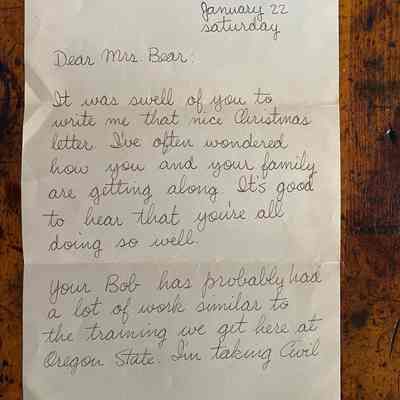 January 22
saturday
Dear Mrs. Bear:
It was swell of you to
write me that nice Christmas
letter. I've often wondered
how you and your family
are getting along. It's good
to hear that you're all
doing so well.
Your Bob has probably had
a lot of work similar to
the training we get here at
Oregon State. I'm taking Civil